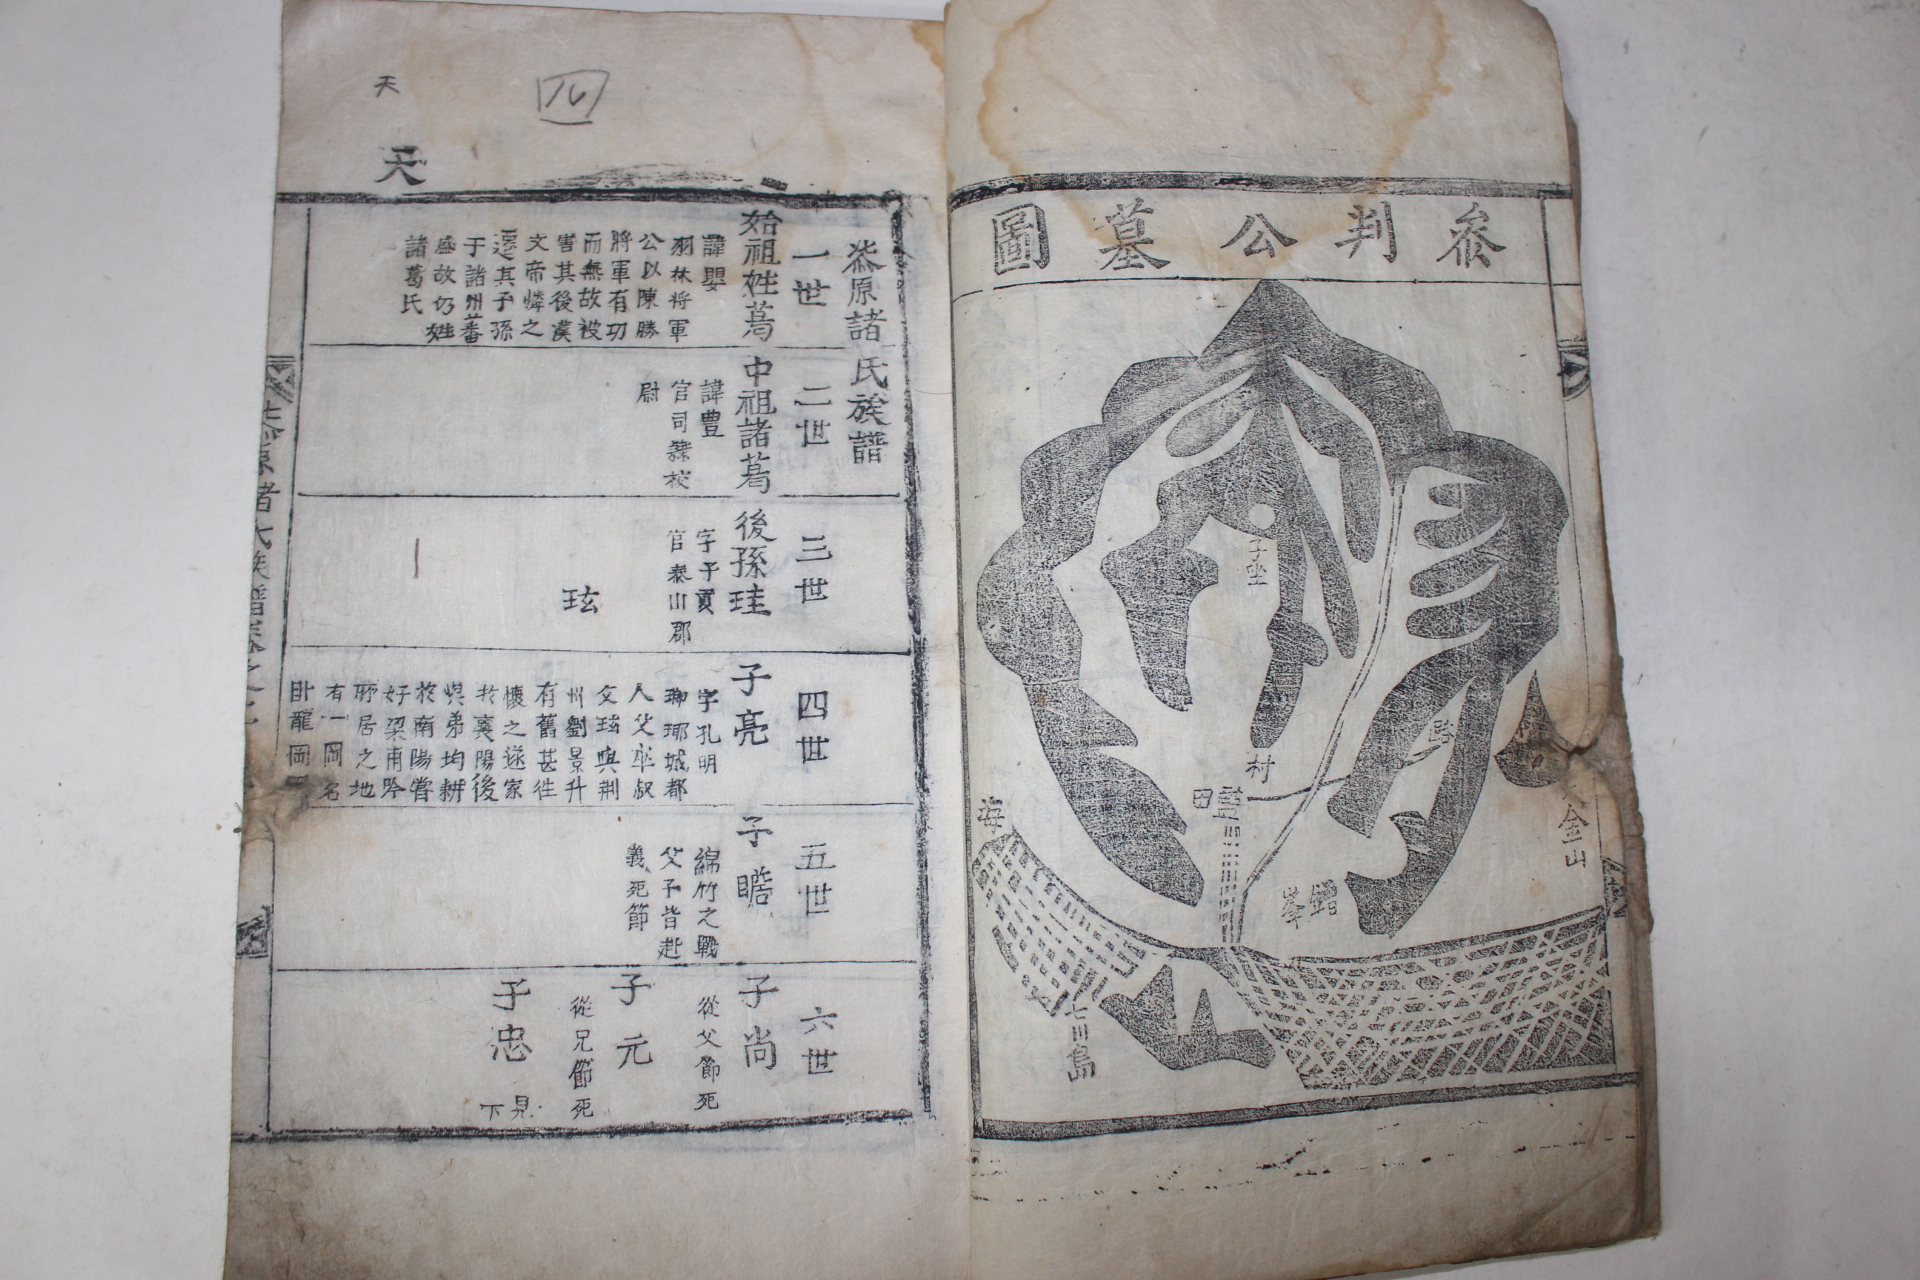 叅判公墓圖
子坐
村
路
鹽田
海
大金山
甑峯
七川島
四
天
天
漆原諸氏族譜
一世
始祖姓葛
諱嬰
羽林将軍
公以陳勝
將軍有功
而無故被
害其後漢
文帝憐之
遷其子孫
于諸州蕃
盛故仍姓
諸葛氏
二世
中祖諸葛
諱豊
官司隸校
尉
三世
後孫珪
字子貢
官泰山郡
玹
四世
子亮
字孔明
瑯琊城都
人父卒叔
父玹與荆
州劉景升
有舊甚往
懷之遂家
於襄陽後
與弟均耕
於南陽嘗
好梁甫吟
所居之地
有一岡名
卧龍岡
五世
子瞻
綿竹之戰
父子皆赴
義死節
六世
子尚
從父節死
子元
從兄節死
子忠
見下
漆原諸氏族譜卷之